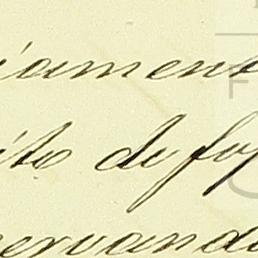 iament
ito de fo
ervand